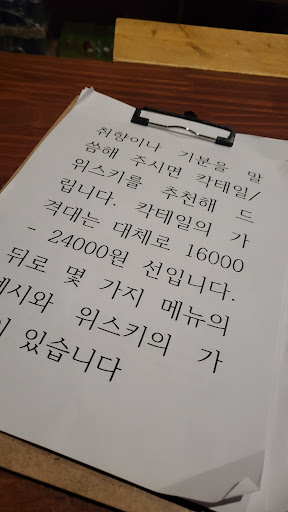 취향이나 기분을 말
씀해 주시면 칵테일/
위스키를 추천해 드
립니다. 칵테일의 가
격대는 대체로 16000
- 24000원 선입니다.
뒤로 몇 가지 메뉴의
예시와 위스키의 가
있습니다